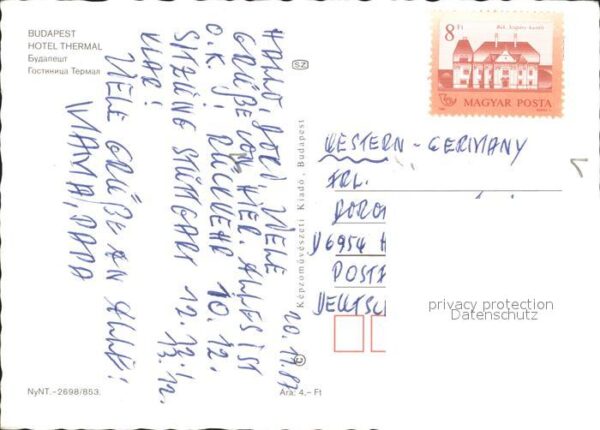 BUDAPEST
HOTEL THERMAL
Будапешт
Гостиница Термал
20.11.87
HALLO, DORI, VIELE
GRÜßE VON HIER. ALLES IST
O.K.! RÜCKKEHR 10.12.
SITZUNG STUTTGART 12.12./
13.12.
KLAR!
VIELE GRÜßE AN ALLE!
MAMA, PAPA
NyNT.-2698/853.
SZ
Képzőművészeti Kiadó, Budapest
©
Ára: 4,- Ft
8 Ft
MAGYAR POSTA
WESTERN - GERMANY
FRL.
DORO
D 6954 H
POSTF
DEUTSC
privacy protection
Datenschutz